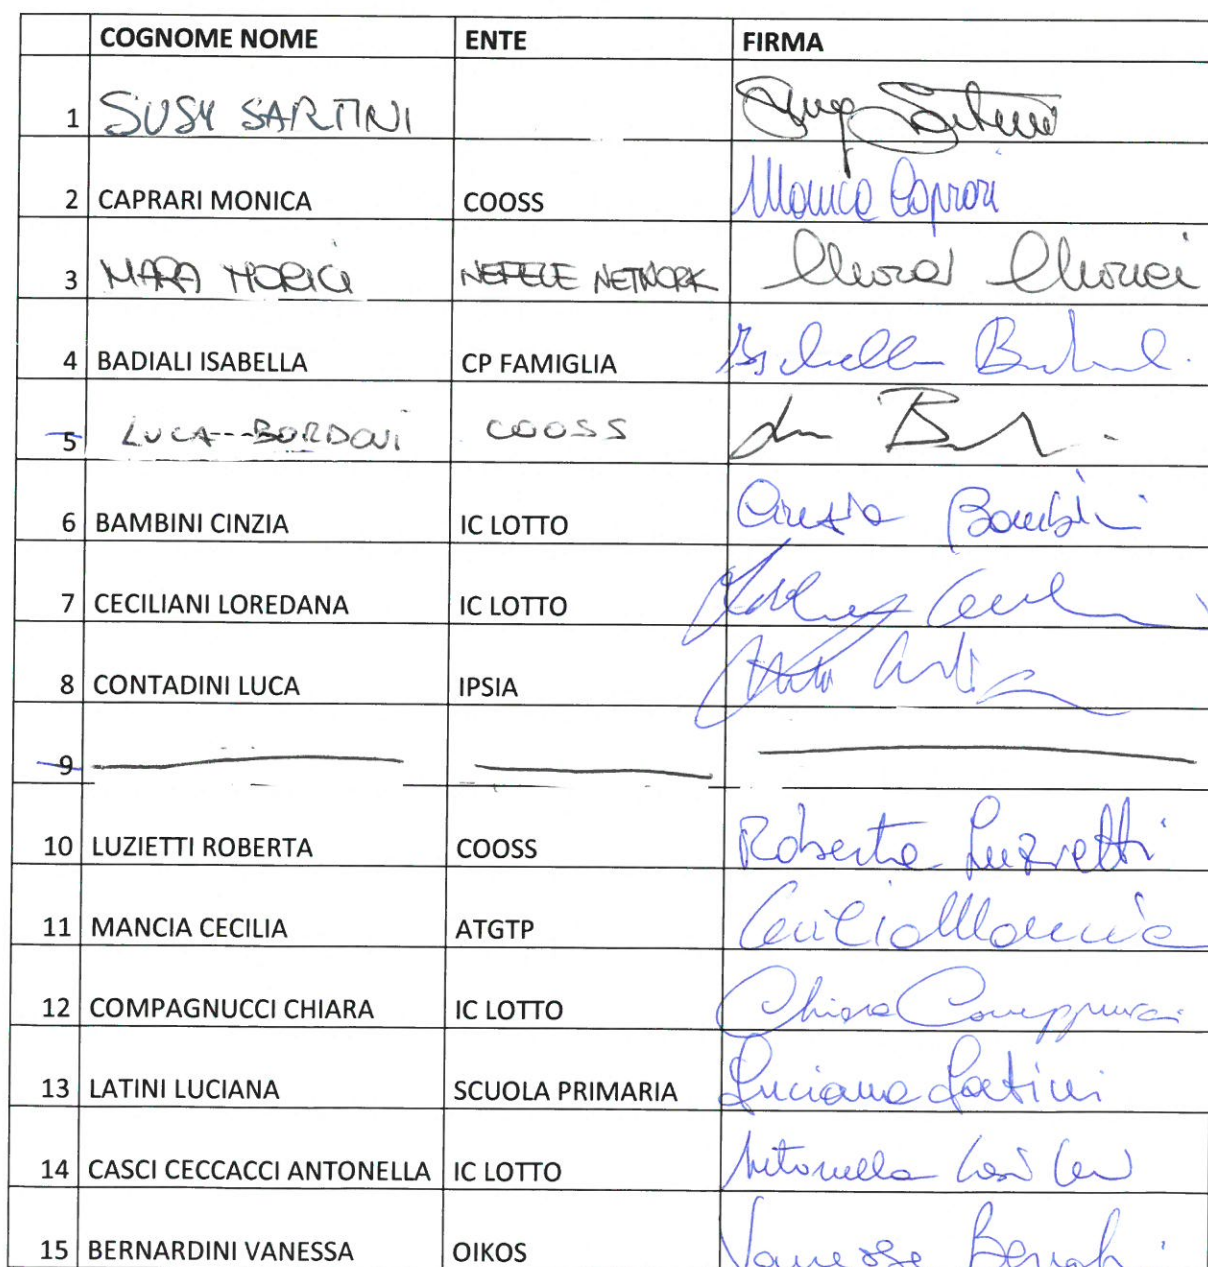 COGNOME NOME ENTE FIRMA
1 SUSY SARTINI Susy Sartini
2 CAPRARI MONICA COOSS Monica Caprari
3 MARA MORICI NEFELE NETWORK Mara Morici
4 BADIALI ISABELLA CP FAMIGLIA Isabella
5 LUCA BORDONI COOSS
6 BAMBINI CINZIA IC LOTTO Cinzia Bambini
7 CECILIANI LOREDANA IC LOTTO
8 CONTADINI LUCA IPSIA
9
10 LUZIETTI ROBERTA COOSS Roberta Luzietti
11 MANCIA CECILIA ATGTP Cecilia Mancia
12 COMPAGNUCCI CHIARA IC LOTTO Chiara
13 LATINI LUCIANA SCUOLA PRIMARIA Luciana Latini
14 CASCI CECCACCI ANTONELLA IC LOTTO Antonella
15 BERNARDINI VANESSA OIKOS Vanessa